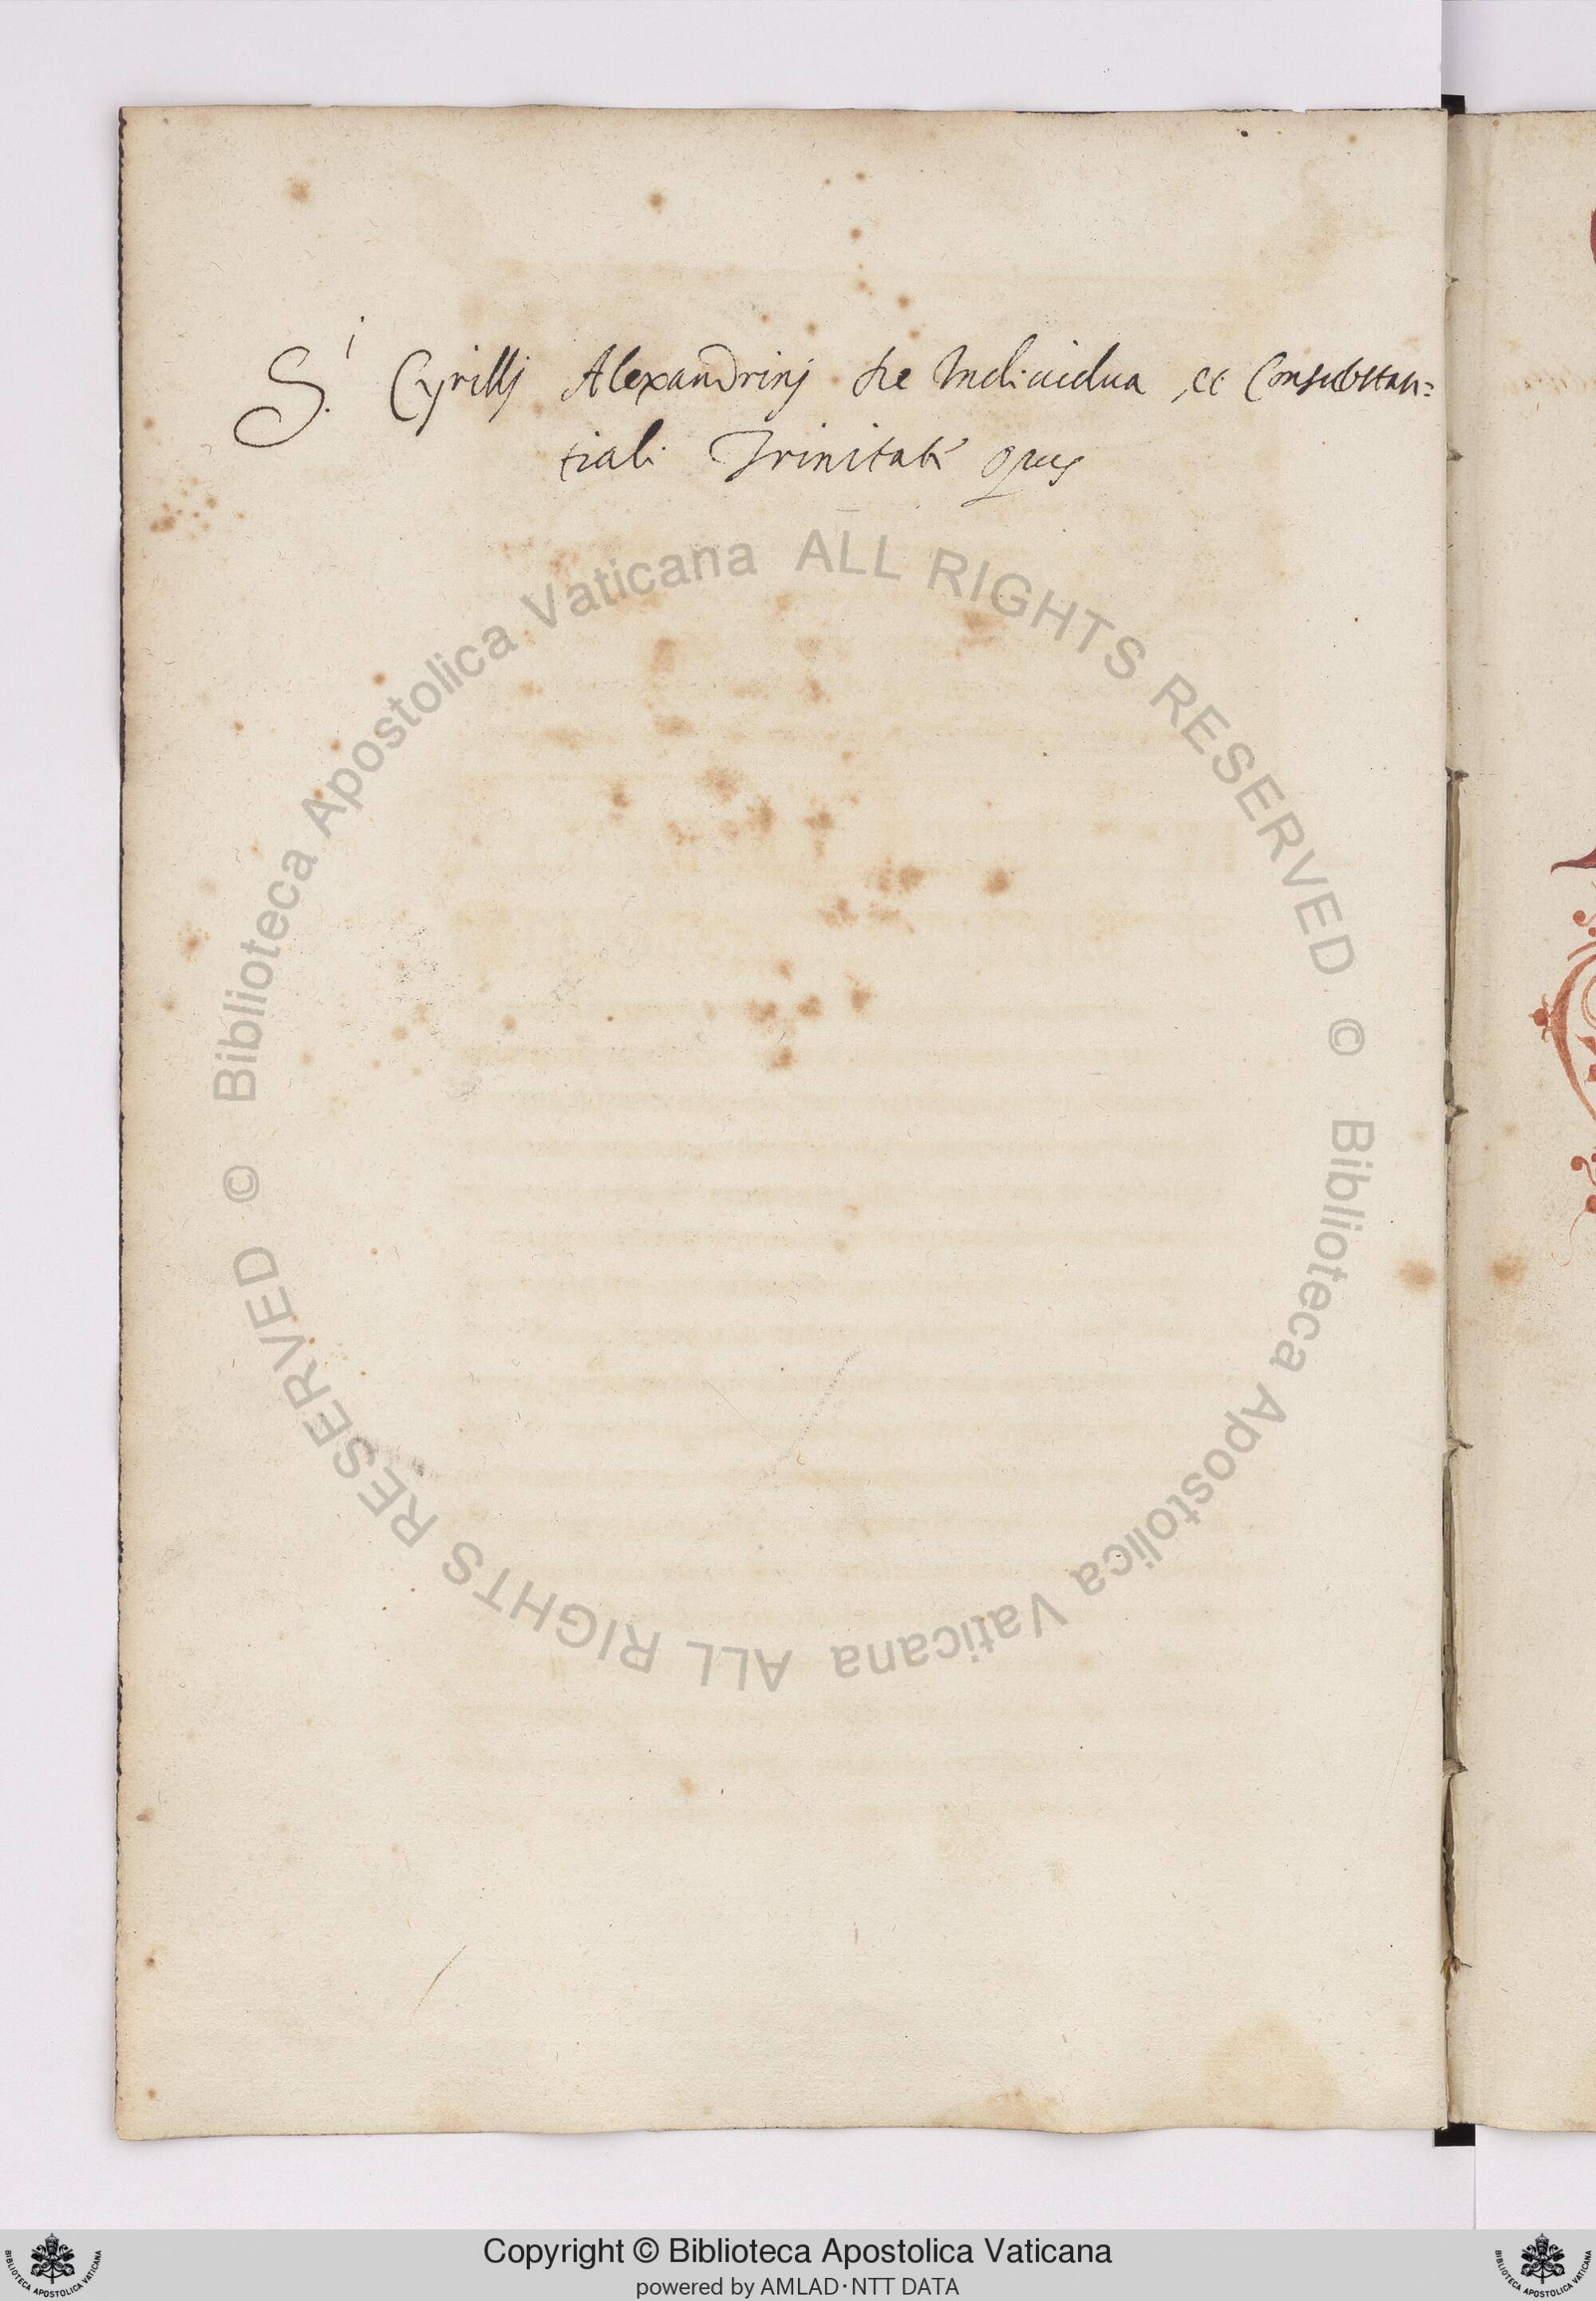 S.i Cyrillj Alexandrinj de Indiuidua, et Consubstan=
tiali Trinitate opus
© Biblioteca Apostolica Vaticana ALL RIGHTS RESERVED
© Biblioteca Apostolica Vaticana ALL RIGHTS RESERVED
Copyright © Biblioteca Apostolica Vaticana
powered by AMLAD·NTT DATA
BIBLIOTECA APOSTOLICA VATICANA
BIBLIOTECA APOSTOLICA VATICANA